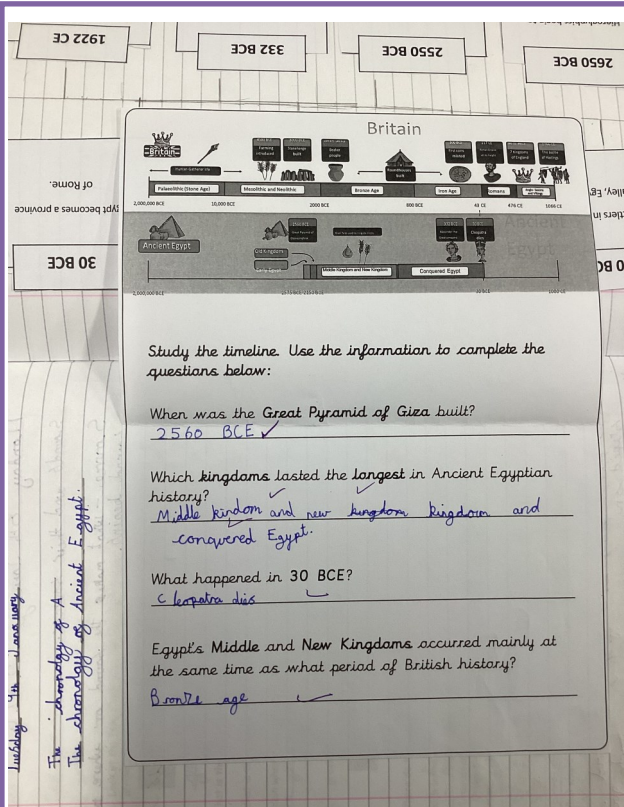 1922 CE
332 BCE
2550 BCE
2650 BCE
of Rome.
ypt becomes a province
30 BCE
Britain
Britain
Farming introduced
Stonehenge built
Beaker people
Roundhouses built
7 Kingdoms of England
The Battle of Hastings
Human Gatherer life
Palaeolithic (Stone Age)
Mesolithic and Neolithic
Bronze Age
Iron Age
Romans
2,000,000 BCE
10,000 BCE
2000 BCE
800 BCE
43 CE
476 CE
1066 CE
Ancient Egypt
Old Kingdom
Middle Kingdom and New Kingdom
Conquered Egypt
Cleopatra dies
2,000,000 BCE
30 BCE
Study the timeline. Use the information to complete the
questions below:
When was the Great Pyramid of Giza built?
2560 BCE
Which kingdoms lasted the longest in Ancient Egyptian
history?
Middle kindom and new kingdom kingdoim and
conquered Egypt.
What happened in 30 BCE?
Cleopatra dies
Egypt's Middle and New Kingdoms occurred mainly at
the same time as what period of British history?
Bronze age
Tuesday 9th January
The chronology of A
The chronology of Ancient Egypt.